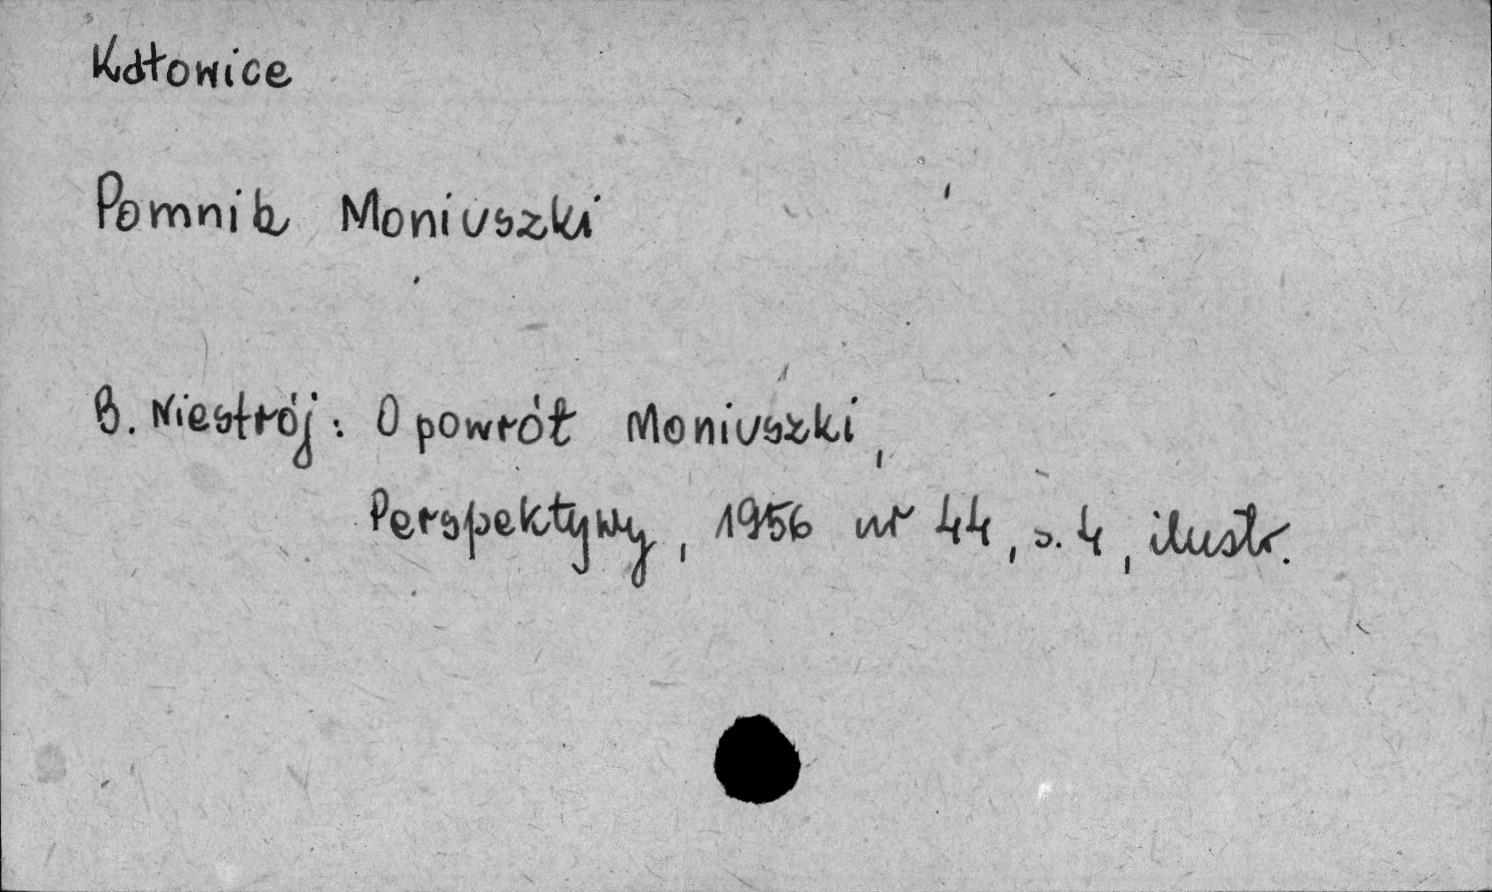 Katowice
Pomnik Moniuszki
B. Niestrój: O powrót Moniuszki,
Perspektywy, 1956 nr 44, s. 4, ilustr.